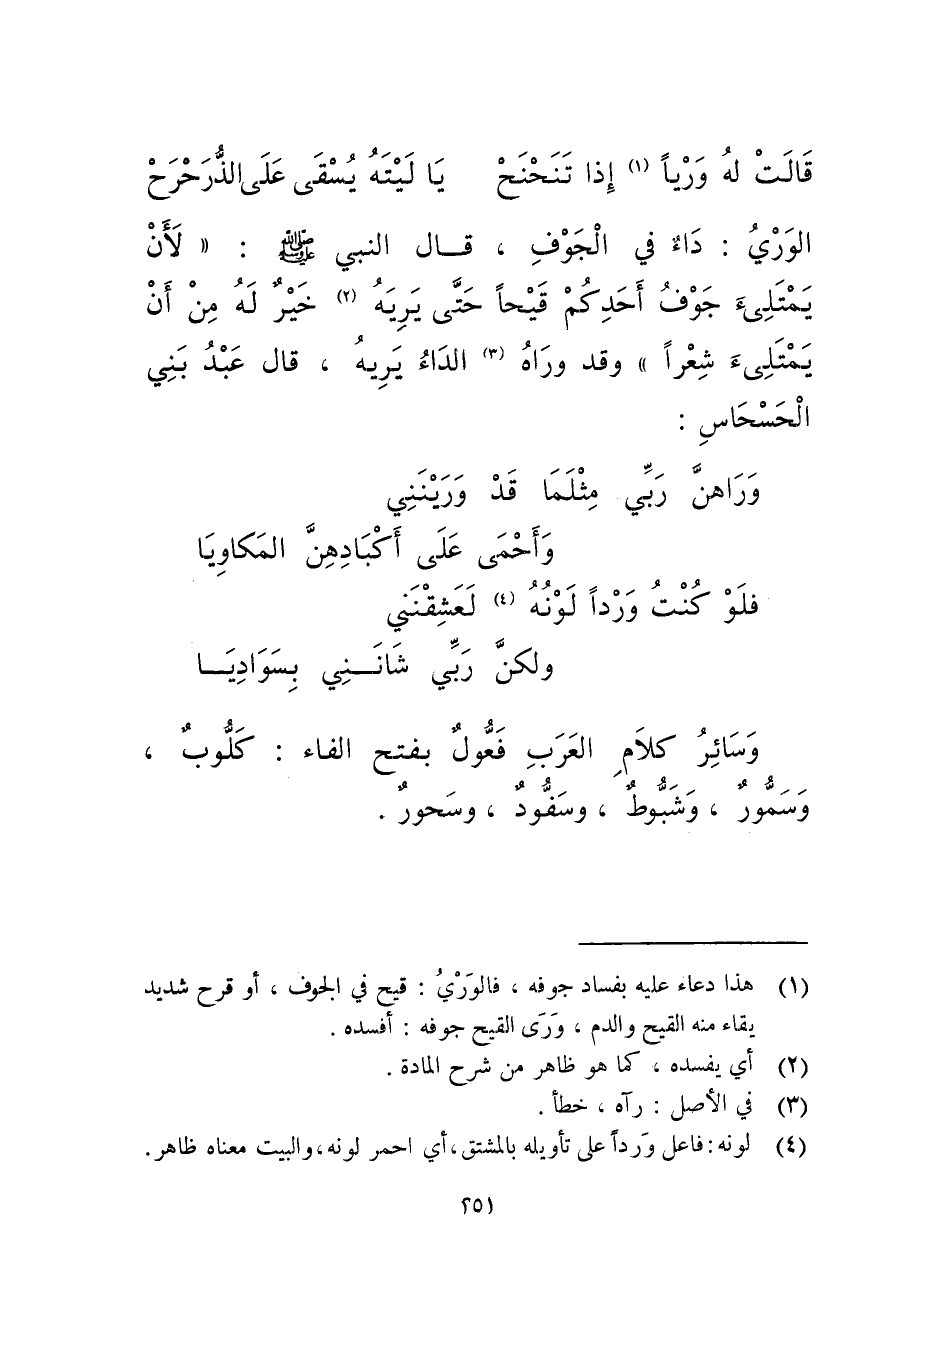 قَالَتْ لهُ وَرْياً (١) إِذا تَنَحْنَحْ يَا لَيْتَهُ يُسْقَى عَلَى الذُّرَحْرَحْ
الوَرْيُ : دَاءٌ في الْجَوْفِ ، قـــال النبي ﷺ : « لَأَنْ
يَمْتَلِىءَ جَوْفُ أَحَدِكُمْ قَيْحاً حَتَّى يَرِيَهُ (٢) خَيْرٌ لَهُ مِنْ أَنْ
يَمْتَلِىءَ شِعْراً » وقد ورَاهُ (٣) الدَاءُ يَرِيهُ ، قال عَبْدُ بَنِي
الْحَسْحَاسِ :
وَرَاهنَّ رَبِّي مِثْلَمَا قَدْ وَرَيْنَنِي
وَأَحْمَى عَلَى أَكْبَادِهِنَّ المَكاوِيَا
فلَوْ كُنْتُ وَرْداً لَوْنُهُ (٤) لَعَشِقْنَنِي
ولكنَّ رَبِّي شَانَـــنِي بِسَوَادِيَـــا
وَسَائِرُ كلاَمِ العَرَبِ فَعُّولٌ بفتح الفاء : كَلُّوبٌ ،
وَسَمُّورٌ ، وَشَبُّوطٌ ، وسَفُّودٌ ، وسَحورٌ .
(١) هذا دعاء عليه بفساد جوفه ، فالوَرْيُ : قيح في الجوف ، أو قرح شديد
يقاء منه القيح والدم ، وَرَى القيح جوفه : أفسده .
(٢) أي يفسده ، كما هو ظاهر من شرح المادة .
(٣) في الأصل : رآه ، خطأ .
(٤) لونه : فاعل وَرداً على تأويله بالمشتق ، أي احمر لونه ، والبيت معناه ظاهر .
٢٥١